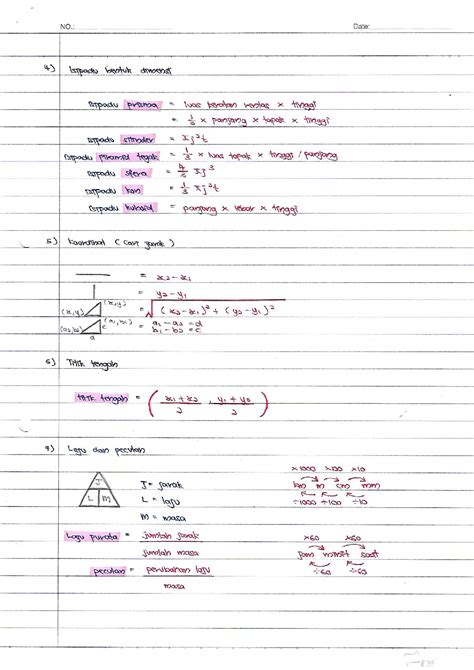 NO.: Date:
4) Isipadu bentuk dimensi
Isipadu prisma = luas keratan rentas × tinggi
= 1/2 × panjang × tapak × tinggi
Isipadu silinder = πj²t
Isipadu piramid tegak = 1/3 × luas tapak × tinggi / panjang
Isipadu sfera = 4/3 πj³
Isipadu kon = 1/3 × πj²t
Isipadu kuboid = panjang × lebar × tinggi
5) Koordinat (cari jarak)
= x₂ - x₁
= y₂ - y₁
(x,y) (x,y) = √(x₂ - x₁)² + (y₂ - y₁)²
(a₂,b₂) (a₁,b₁) c a = a₁ - a₂ = d
b₁ - b₂ = c
6) Titik tengah
titik tengah = (x₁ + x₂ / 2 , y₁ + y₂ / 2)
7) Laju dan pecutan
×1000 ×100 ×10
J J = jarak km m cm mm
L M L = laju ÷1000 ÷100 ÷10
m = masa
Laju purata = jumlah jarak ×60 ×60
jumlah masa jam minit saat
pecutan = perubahan laju ÷60 ÷60
masa